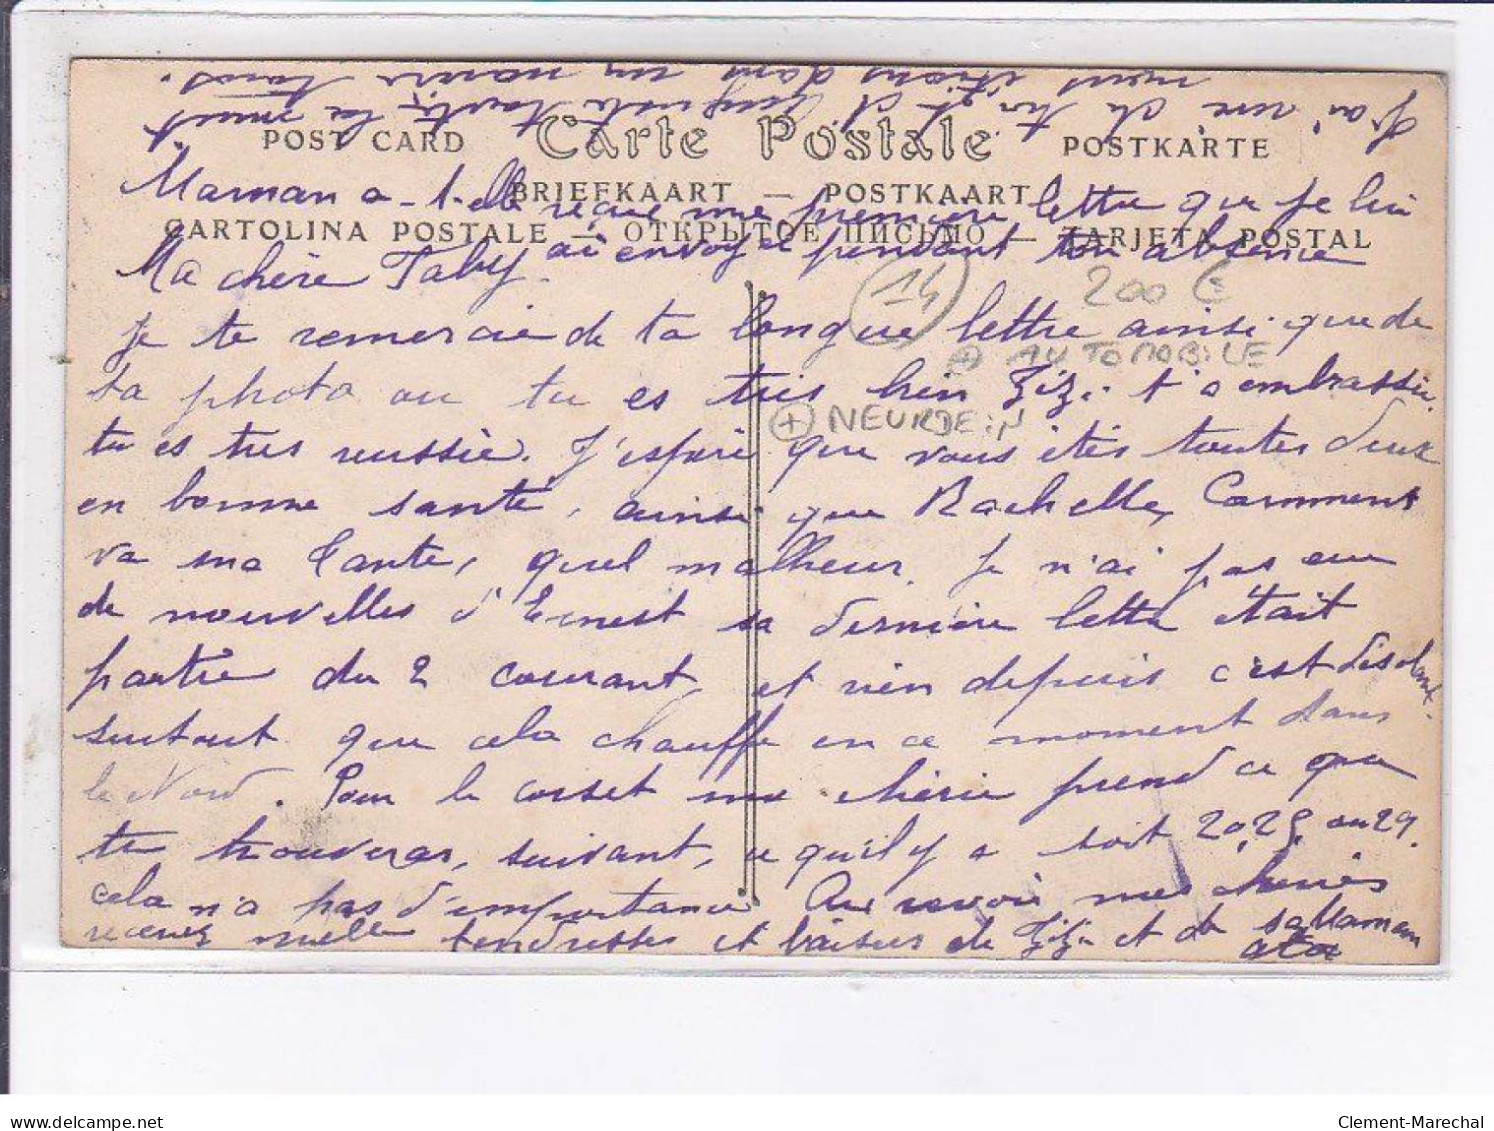 J'ai
POST CARD Carte Postale POSTKARTE
BRIEFKAART — POSTKAART
CARTOLINA POSTALE — ОТКРЫТОЕ ПИСЬМО — TARJETA POSTAL
Maman a-t-elle reçue une première lettre que je lui
ai envoyé pendant ton absence
Ma chère Taby.
14
200 €
+ AUTOMOBILE
+ NEURDEIN
Je te remercie de ta longue lettre ainsi que de
ta photo ou tu es très bien Zizi t'a embrassée.
tu es très reussie. J'espère que vous êtes toutes deux
en bonne santé, ainsi que Rachelle, Comment
va ma Tante, quel malheur. Je n'ai pas eu
de nouvelles d'Ernest sa dernière lettre était
partie du 2 courant, et rien depuis c'est désolant.
surtout que cela chauffe en ce moment dans
le Nord. Pour le corset ma chérie prend ce que
tu trouveras, suivant, ce qu'il y a soit 20, 25 ou 29.
cela n'a pas d'importance. Au revoir mes chéries
recevez mille tendresses et baisers de Zizi et de sa Maman
Clement-Marechal
www.delcampe.net